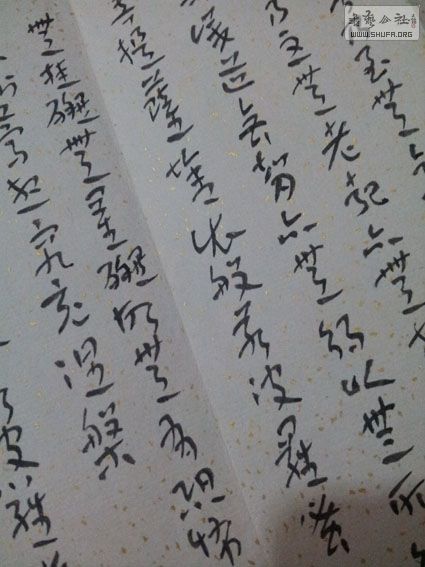 至無
乃至無老死亦無
滅道無智亦無得以無所
菩提薩埵依般若波羅蜜
無罣礙無罣礙故無有恐怖
夢想究竟涅槃
波羅
書法公社
WWW.SHUFA.ORG